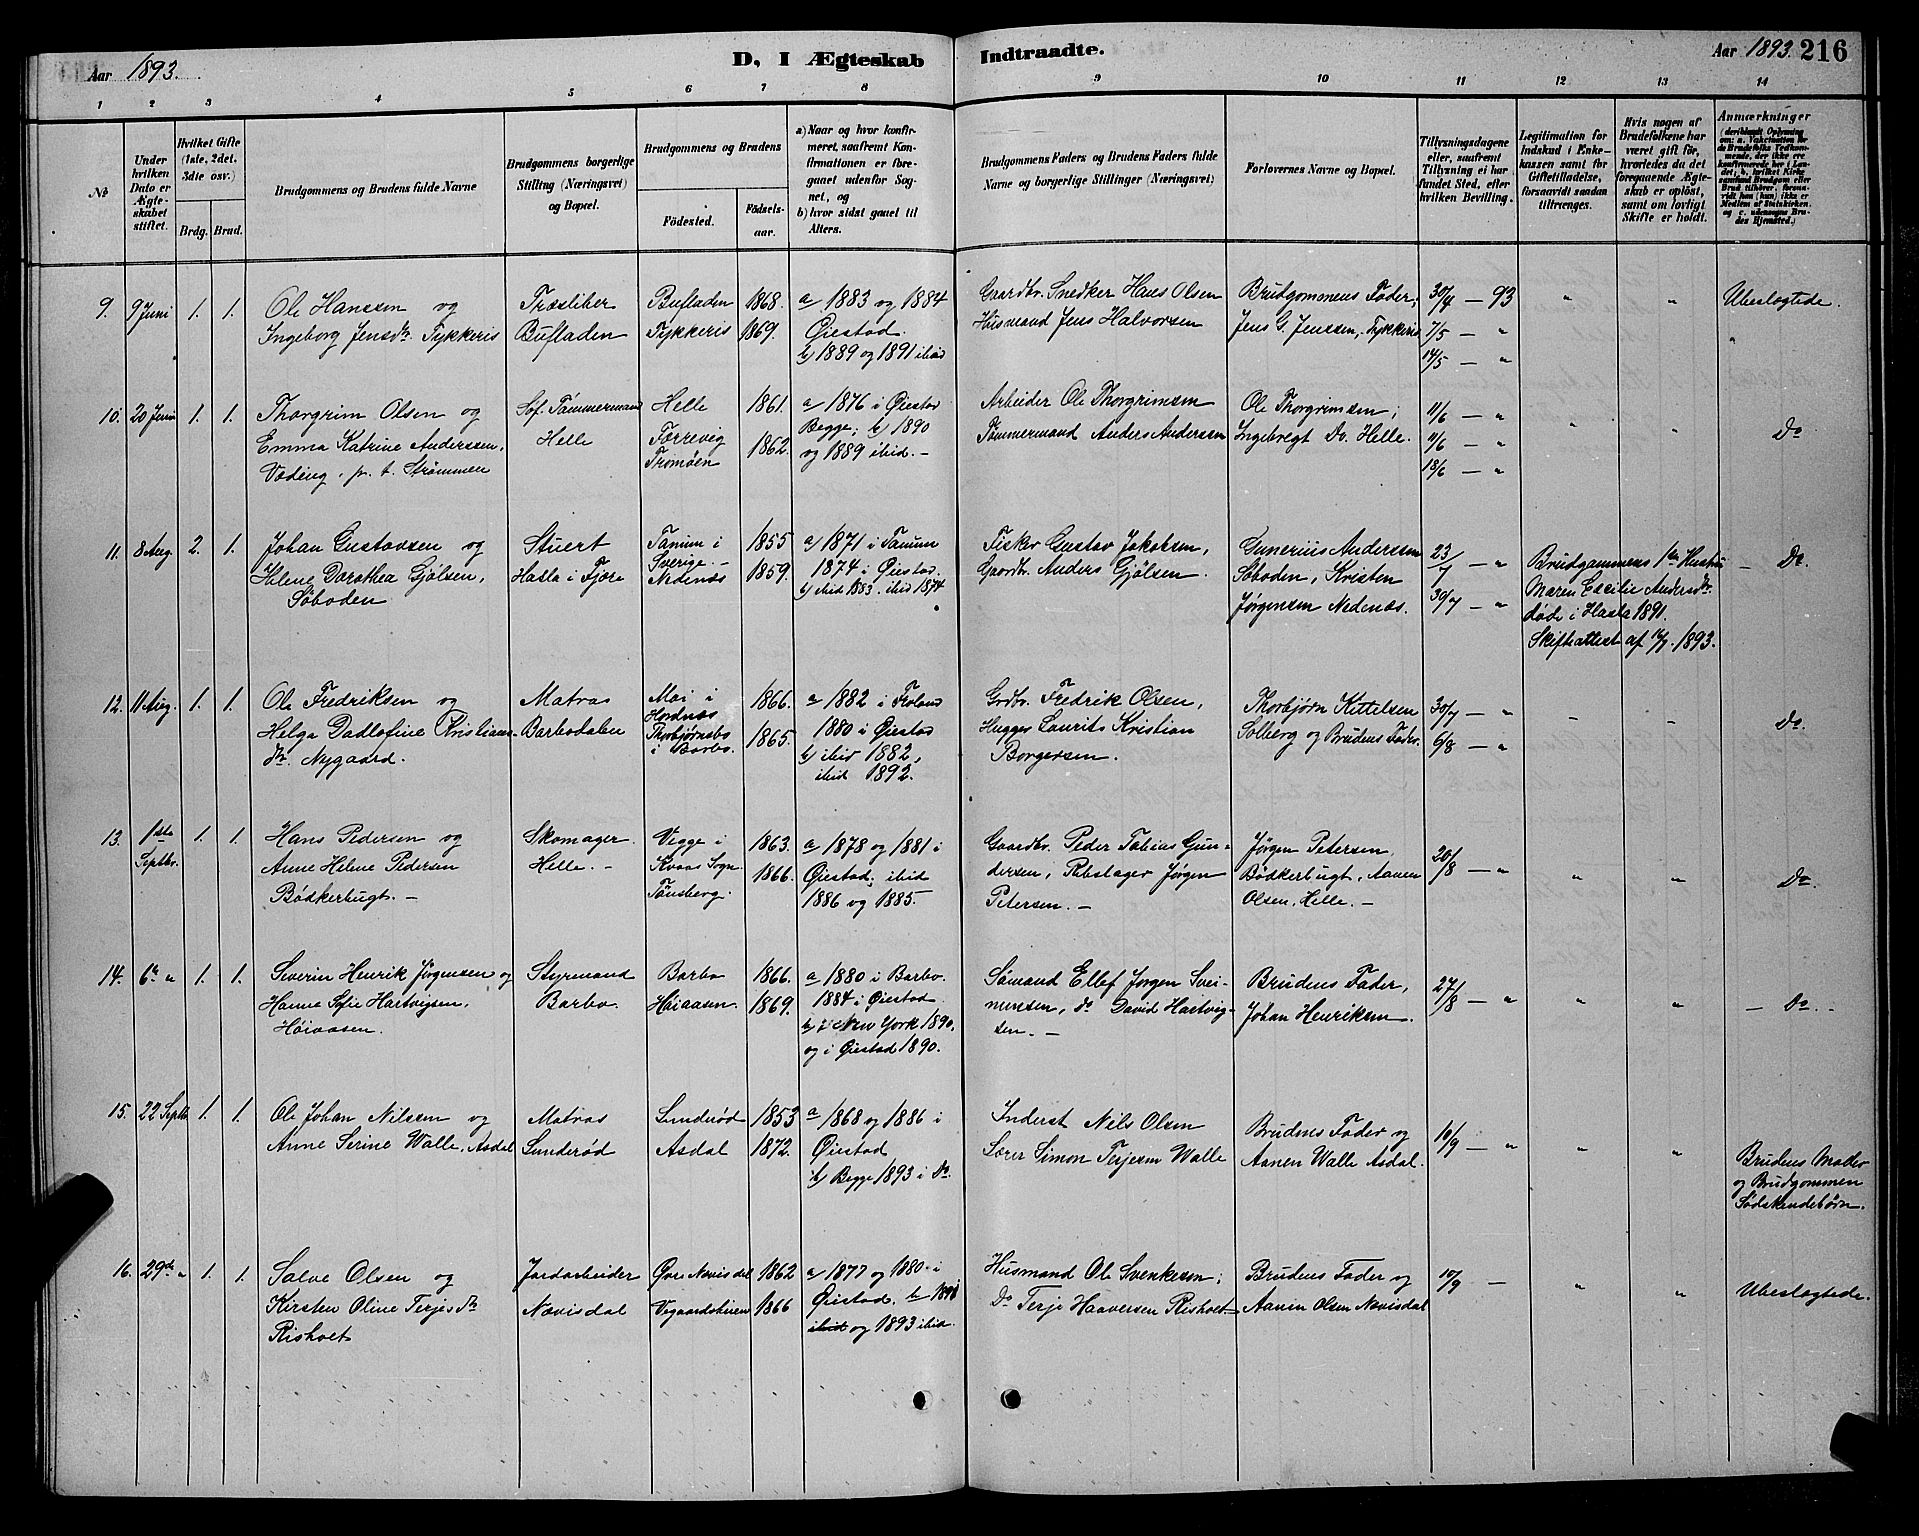 Aar 1893.
D, I Ægteskab
Indtraadte.
Aar 1893. 216
1 2 3 4 5 6 7 8 9 10 11 12 13 14
No
Under hvilken Dato er Ægteskabet stiftet.
Hvilket Gifte (1ste, 2det, 3dte osv.)
Brdg. Brud.
Brudgommens og Brudens fulde Navne
Brudgommens borgerlige Stilling (Næringsvei) og Bopæl.
Brudgommens og Brudens
Födested.
Födselsaar.
a) Naar og hvor konfirmeret, saafremt Konfirmationen er foregaaet udenfor Sognet, og
b) hvor sidst gaaet til Alters.
Brudgommens Faders og Brudens Faders fulde Navne og borgerlige Stillinger (Næringsvei)
Forlovernes Navne og Bopæl.
Tillysningsdagene eller, saafremt Tillysning ei har fundet Sted, efter hvilken Bevilling.
Legitimation for Indskud i Enkekassen samt for Giftetilladelse, forsaavidt saadan tiltrænges.
Hvis nogen af Brudefolkene har været gift för, hvorledes da det foregaaende Ægteskab er oplöst, samt om lovligt Skifte er holdt.
Anmærkninger
9. 9 Juni 1. 1.
Ole Hanssen og
Ingeborg Jensdr. Tykkeris
Træsliber
Bufladen
Bufladen 1868.
Tykkeris 1869.
a 1883 og 1884
Øiestad.
b) 1889 og 1891 ibid
Gaardbr. Snedker Hans Olsen
Husmand Jens Halvorsen
Brudgommens Fader,
Jens G. Jenssen, Tykkeris
30/4 — 93
7/5 — "
14/5 — "
" "
Ubeslægtede.
10. 20 Juni 1. 1.
Thorgrim Olsen og
Emma Katrine Anderssen,
Væding, p. t. Strømmen
Sof. Tømmermand
Helle
Helle 1861.
Færrevig
Tromøen 1862.
a 1876 i Øiestad
Begge; b) 1890
og 1889 ibid. —
Arbeider Ole Thorgrimsen
Tømmermand Anders Andersen
Ole Thorgrimsen;
Ingebregt Do. Helle.
11/6 — "
11/6 — "
18/6 — "
" "
Do
11. 8 Aug. 2. 1.
Johan Gustavsen og
Helene Dorothea Gjølsen,
Søboden
Stuert
Hasla i Fjære
Tanum i
Sverige. —
Nedenæs
1855
1859.
a) 1871 i Tanum
1874 i Øiestad.
b) ibid 1883. ibid 1874
Fisker Gustav Jakobsen,
Gaardbr. Anders Gjölsen.
Gunerius Anderssen
Søboden, Kristen
Jørgensen Nedenæs.
23/7 — "
30/7 — "
Brudgommens 1ste Hustru
Maren Cecilie Andersdr.
døde i Hasla 1891.
Skifteattest af 14/7. 1893.
— Do.
12. 11 Aug. 1. 1.
Ole Fredriksen og
Helga Dadlofine Kristians-
dr. Nygaard.
Matros
Barbodalen
Moi i
Hordnæs
Thorbjørnsbo
i Barbo.
1866.
1865.
a 1882 i Froland
1880 i Øiestad
b) ibid 1882,
ibid 1892.
Grdbr. Fredrik Olsen,
Hugger Laurits Kristian
Borgersen.
Thorbjørn Kittelsen
Solberg og Brudens Fader.
30/7 — "
6/8 — "
Do.
13. 1ste Septbr. 1. 1.
Hans Pedersen og
Anne Helene Pedersen
Bødkerbugt. —
Skomager
Helle. —
Vegge i
Kvaas Sogn
Tønsberg.
1863.
1866.
a 1878 og 1881 i
Øiestad; ibid
1886 og 1885. —
Gaardbr. Peder Tobias Gun-
dersen, Rebslager Jørgen
Petersen. —
Jørgen Petersen
Bødkerbugt, Aanen
Olsen, Helle. —
20/8 — "
" "
Do.
14. 6te " 1. 1.
Severin Henrik Jørgensen og
Hanna Sofie Hartvigsen,
Høiaasen.
Styrmand
Barbo.
Barbo 1866.
Høiaasen. 1869.
a 1880 i Barbo.
1884 i Øiestad
b) i New York 1890.
og i Øiestad 1890.
Sømand Ellef Jørgen Svei-
nunsen, do David Hartvig-
sen. —
Brudens Fader,
Johan Henriksen.
27/8 — "
" "
— Do. —
15. 22 Septbr. 1. 1.
Ole Johan Nilsen og
Anne Serine Walle, Asdal
Matros
Lunderød
Lunderød 1853
Asdal 1872.
a 1868 og 1886 i
Øiestad
b) Begge 1893 i do.
Inderst Niels Olsen
Lærer Simon Terjesen Walle
Brudens Fader og
Aanen Walle Asdal.
10/9 — "
" "
Brudens Moder
og Brudgommen
Sødskendebørn.
16. 29de " 1. 1.
Salve Olsen og
Kirsten Oline Terjesdr.
Risholt
Jordarbeider
Nævisdal
Øvre Nævisdal 1862
1866
a 1877 og 1880 i
Øiestad. b 1891
ibid og 1893 ibid.
Husmand Ole Svenkesen;
Do Terje Haaversen Risholt —
Brudens Fader og
Aanon Olsen Nævisdal
10/9 —
" "
Ubeslægtede.